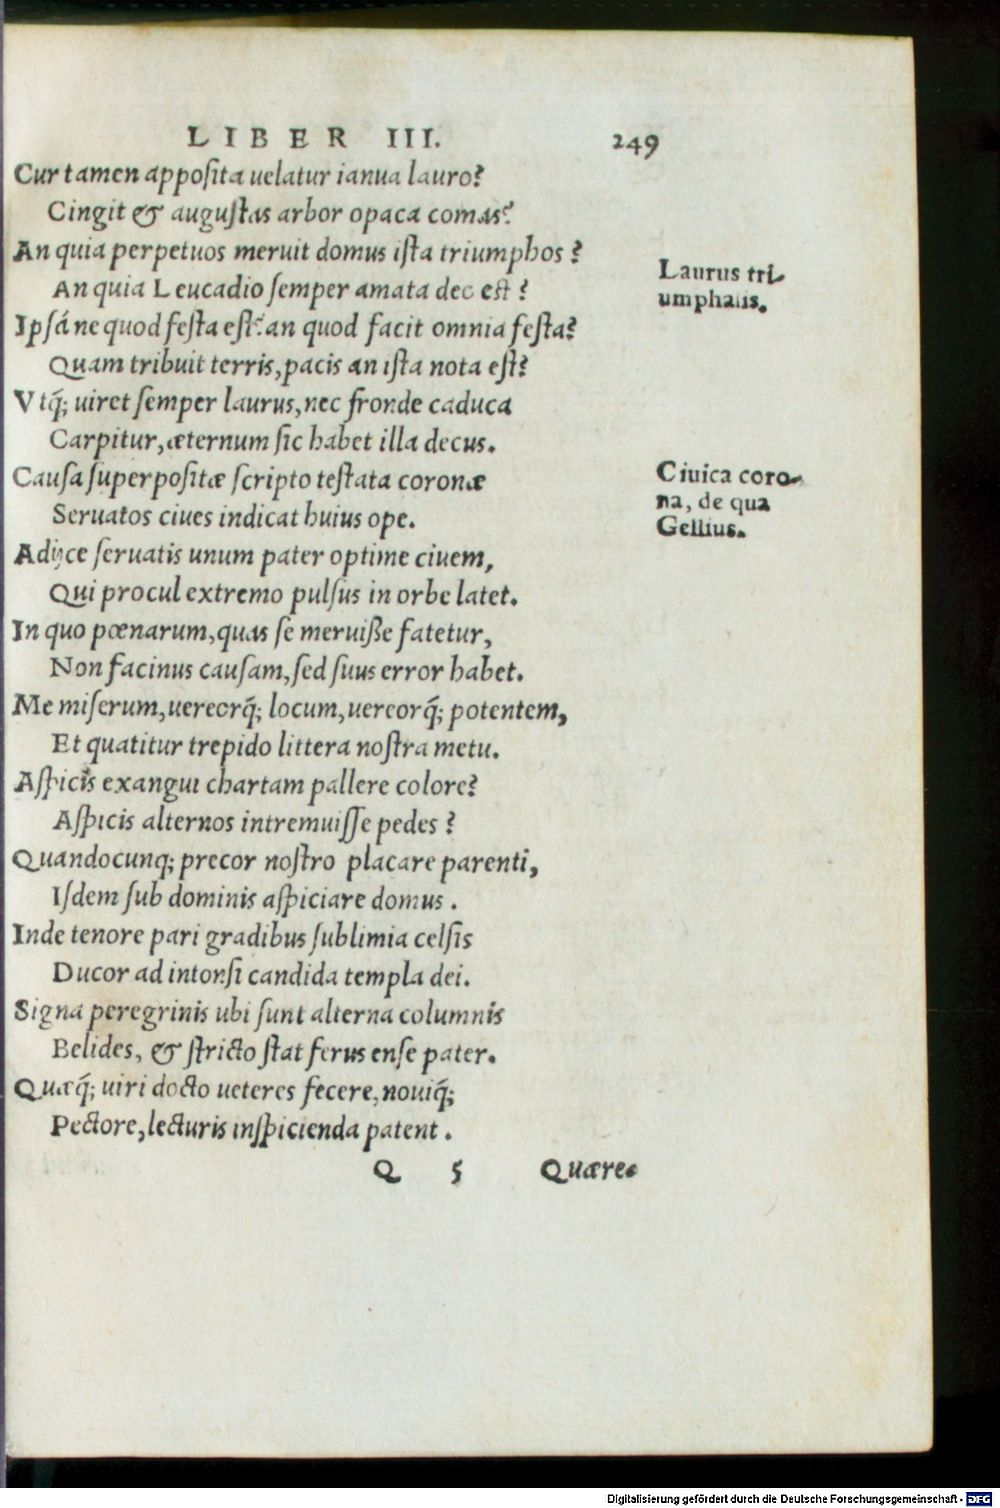 LIBER III. 249
Cur tamen apposita uelatur ianua lauro?
Cingit & augustas arbor opaca comas?
An quia perpetuos meruit domus ista triumphos?
An quia Leucadio semper amata deo est?
Ipsáne quod festa est? an quod facit omnia festa?
Quam tribuit terris, pacis an ista nota est?
Vtq̃; uiret semper laurus, nec fronde caduca
Carpitur, æternum sic habet illa decus.
Causa superpositæ scripto testata coronæ
Seruatos ciues indicat huius ope.
Adijce seruatis unum pater optime ciuem,
Qui procul extremo pulsus in orbe latet.
In quo pœnarum, quas se meruiße fatetur,
Non facinus causam, sed suus error habet.
Me miserum, uereorq̃; locum, uereorq̃; potentem,
Et quatitur trepido littera nostra metu.
Aspicis exangui chartam pallere colore?
Aspicis alternos intremuisse pedes?
Quandocunq; precor nostro placare parenti,
Isdem sub dominis aspiciare domus.
Inde tenore pari gradibus sublimia celsis
Ducor ad intonsi candida templa dei.
Signa peregrinis ubi sunt alterna columnis
Belides, & stricto stat ferus ense pater.
Quæq̃; uiri docto ueteres fecere, nouiq̃;
Pectore, lecturis inspicienda patent.
Q 5 Quære-
Laurus tri-
umphalis.
Ciuica coro-
na, de qua
Gellius.
Digitalisierung gefördert durch die Deutsche Forschungsgemeinschaft - DFG